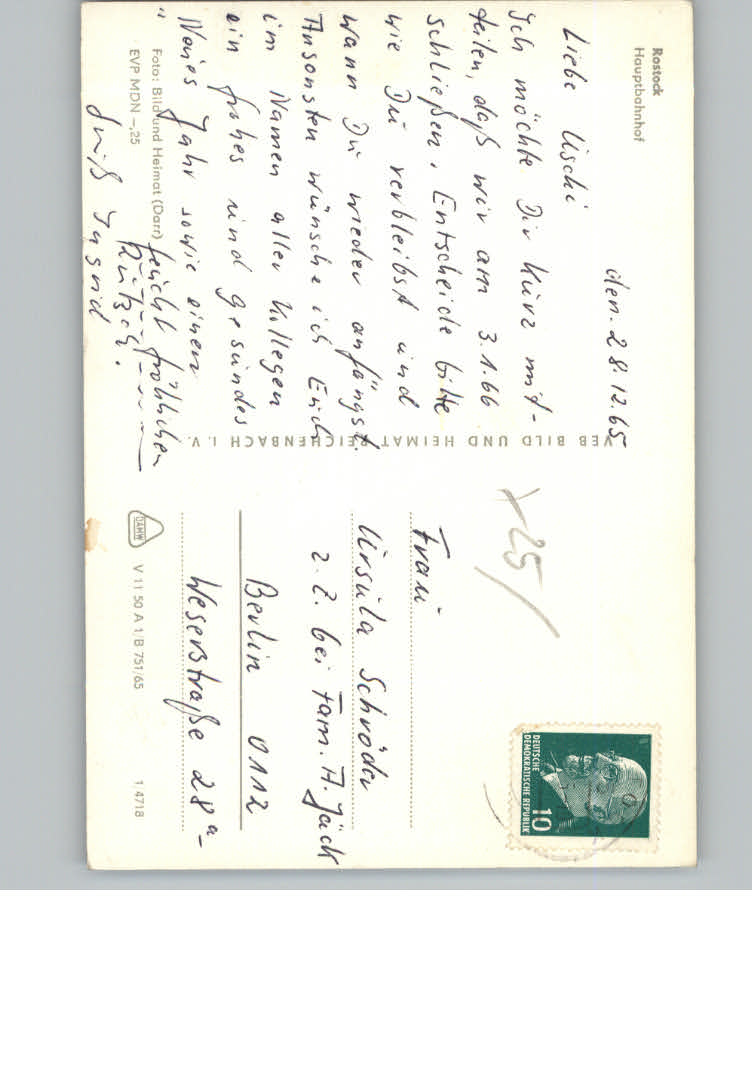 Rostock
Hauptbahnhof
den. 28.12.65
Liebe Uschi
Ich möchte Dir kurz mit-
teilen, daß wir am 3.1.66
schließen. Entscheide bitte
wie Du verbleibst und
wann Du wieder anfängst.
Ansonsten wünsche ich Euch
im Namen aller Kollegen
ein frohes und gesundes
Neues Jahr sowie einen
feucht fröhlichen
Rutsch.
Gruß Ingrid
Foto: Bild und Heimat (Darr)
EVP MDN –,25
VEB BILD UND HEIMAT REICHENBACH I. V.
+25/
DEUTSCHE
DEMOKRATISCHE REPUBLIK
10
Frau
Ursula Schröder
z. Z. bei Fam. A. Jäck
Berlin 0112
Weserstraße 28a
DAMW
V 11 50 A 1/B 751/65
1/4718